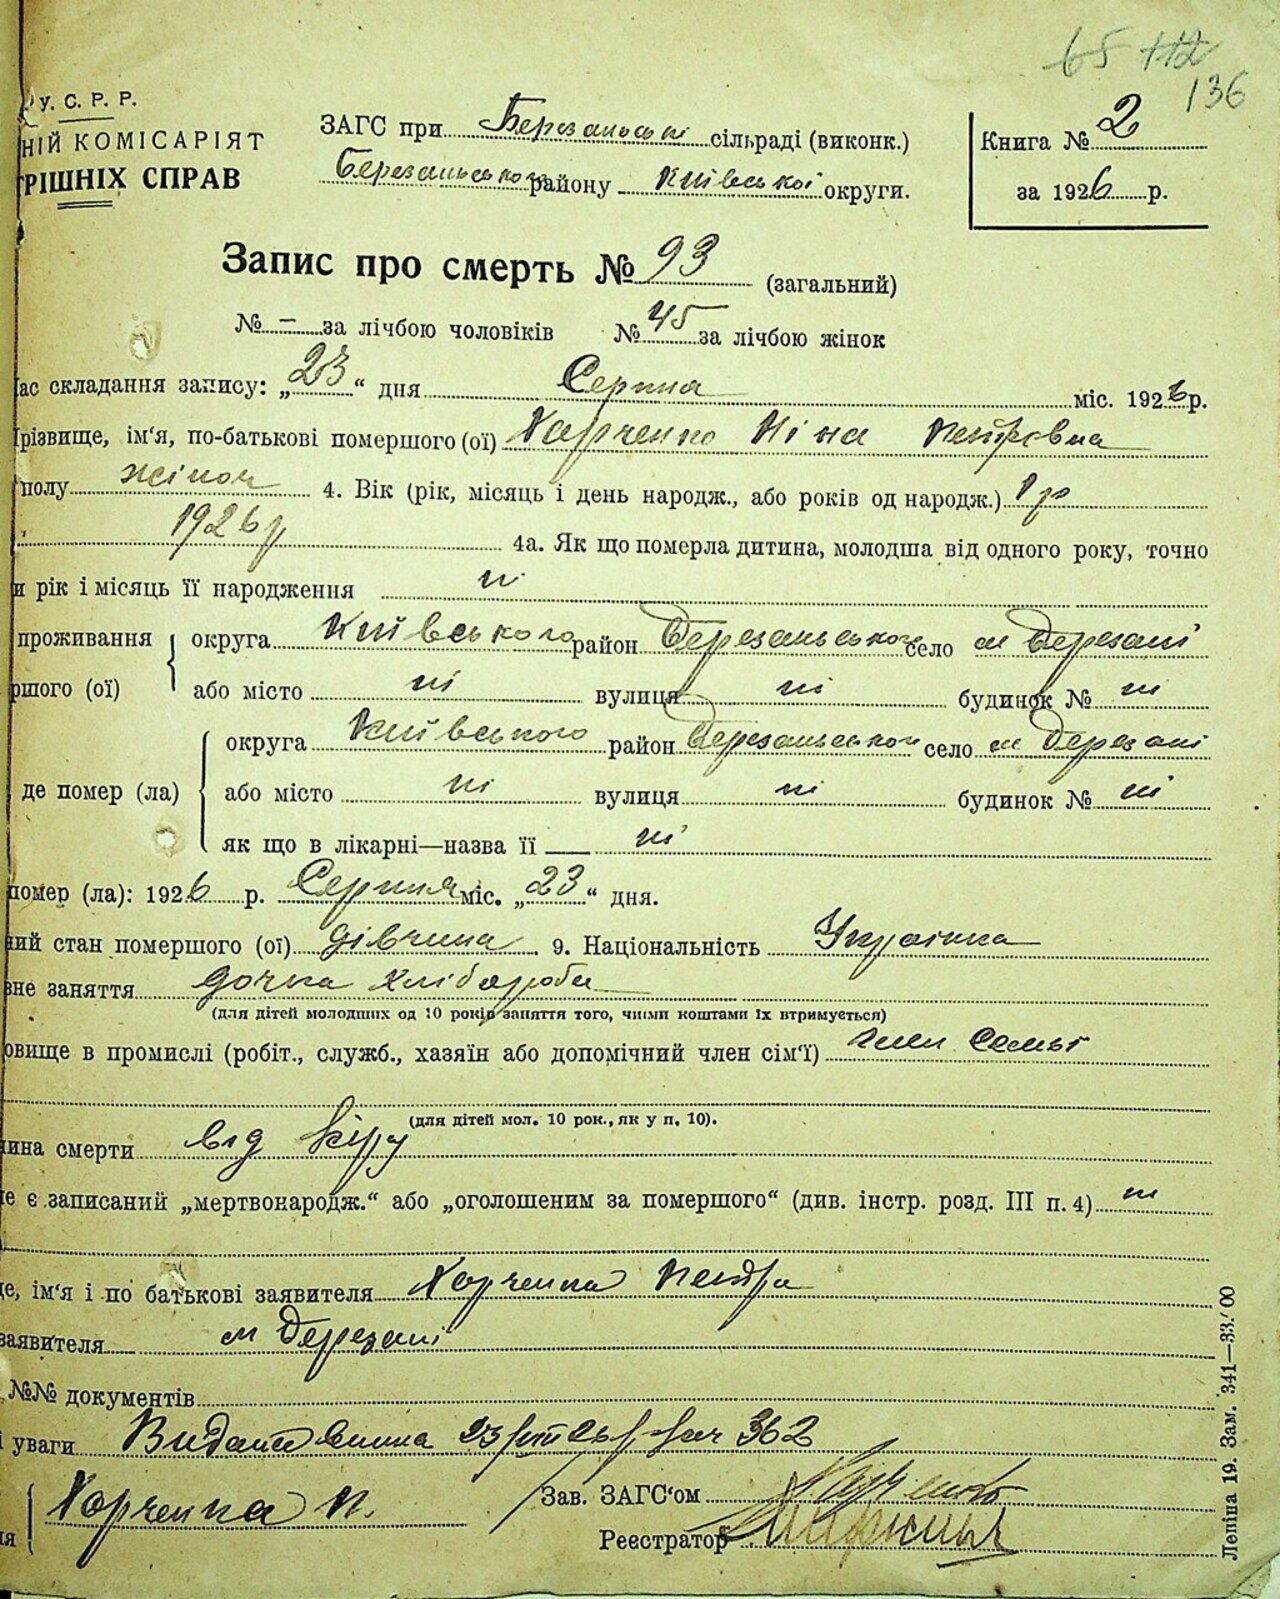 65 112
136
У. С. Р. Р.
НІЙ КОМІСАРІЯТ
РІШНІХ СПРАВ
ЗАГС при Березанські сільраді (виконк.)
Березанського району Київської округи.
Книга № 2
за 1926 р.
Запис про смерть № 93 (загальний)
№ – за лічбою чоловіків № 45 за лічбою жінок
ас складання запису: „23“ дня Серпня міс. 1926 р.
різвище, ім'я, по-батькові помершого (ої) Харченко Ніна Петровна
полу жіноч 4. Вік (рік, місяць і день народж., або років од народж.) 1 р
1926 р 4а. Як що померла дитина, молодша від одного року, точно
и рік і місяць її народження ні
проживання округа Київського район Березанського село м Березані
ршого (ої) або місто ні вулиця ні будинок № ні
округа Київського район Березанського село м Березані
де помер (ла) або місто ні вулиця ні будинок № ні
як що в лікарні—назва її ні
помер (ла): 1926 р. Серпня міс. „23“ дня.
ний стан помершого (ої) дівчина 9. Національність Українка
вне заняття дочка хлібороба
(для дітей молодших од 10 років заняття того, чиіми коштами їх втримується)
овище в промислі (робіт., служб., хазяїн або допомічний член сім'ї) член семьї
(для дітей мол. 10 рок., як у п. 10).
чина смерти від кіру
е є записаний „мертвонародж.“ або „оголошеним за помершого“ (див. інстр. розд. III п. 4) ні
е, ім'я і по батькові заявителя Харченка Петра
заявителя м Березані
№№ документів
уваги 362
Харченка П.
Зав. ЗАГС'ом
Реєстратор
Лепіна 19. Зам. 341—33.'00